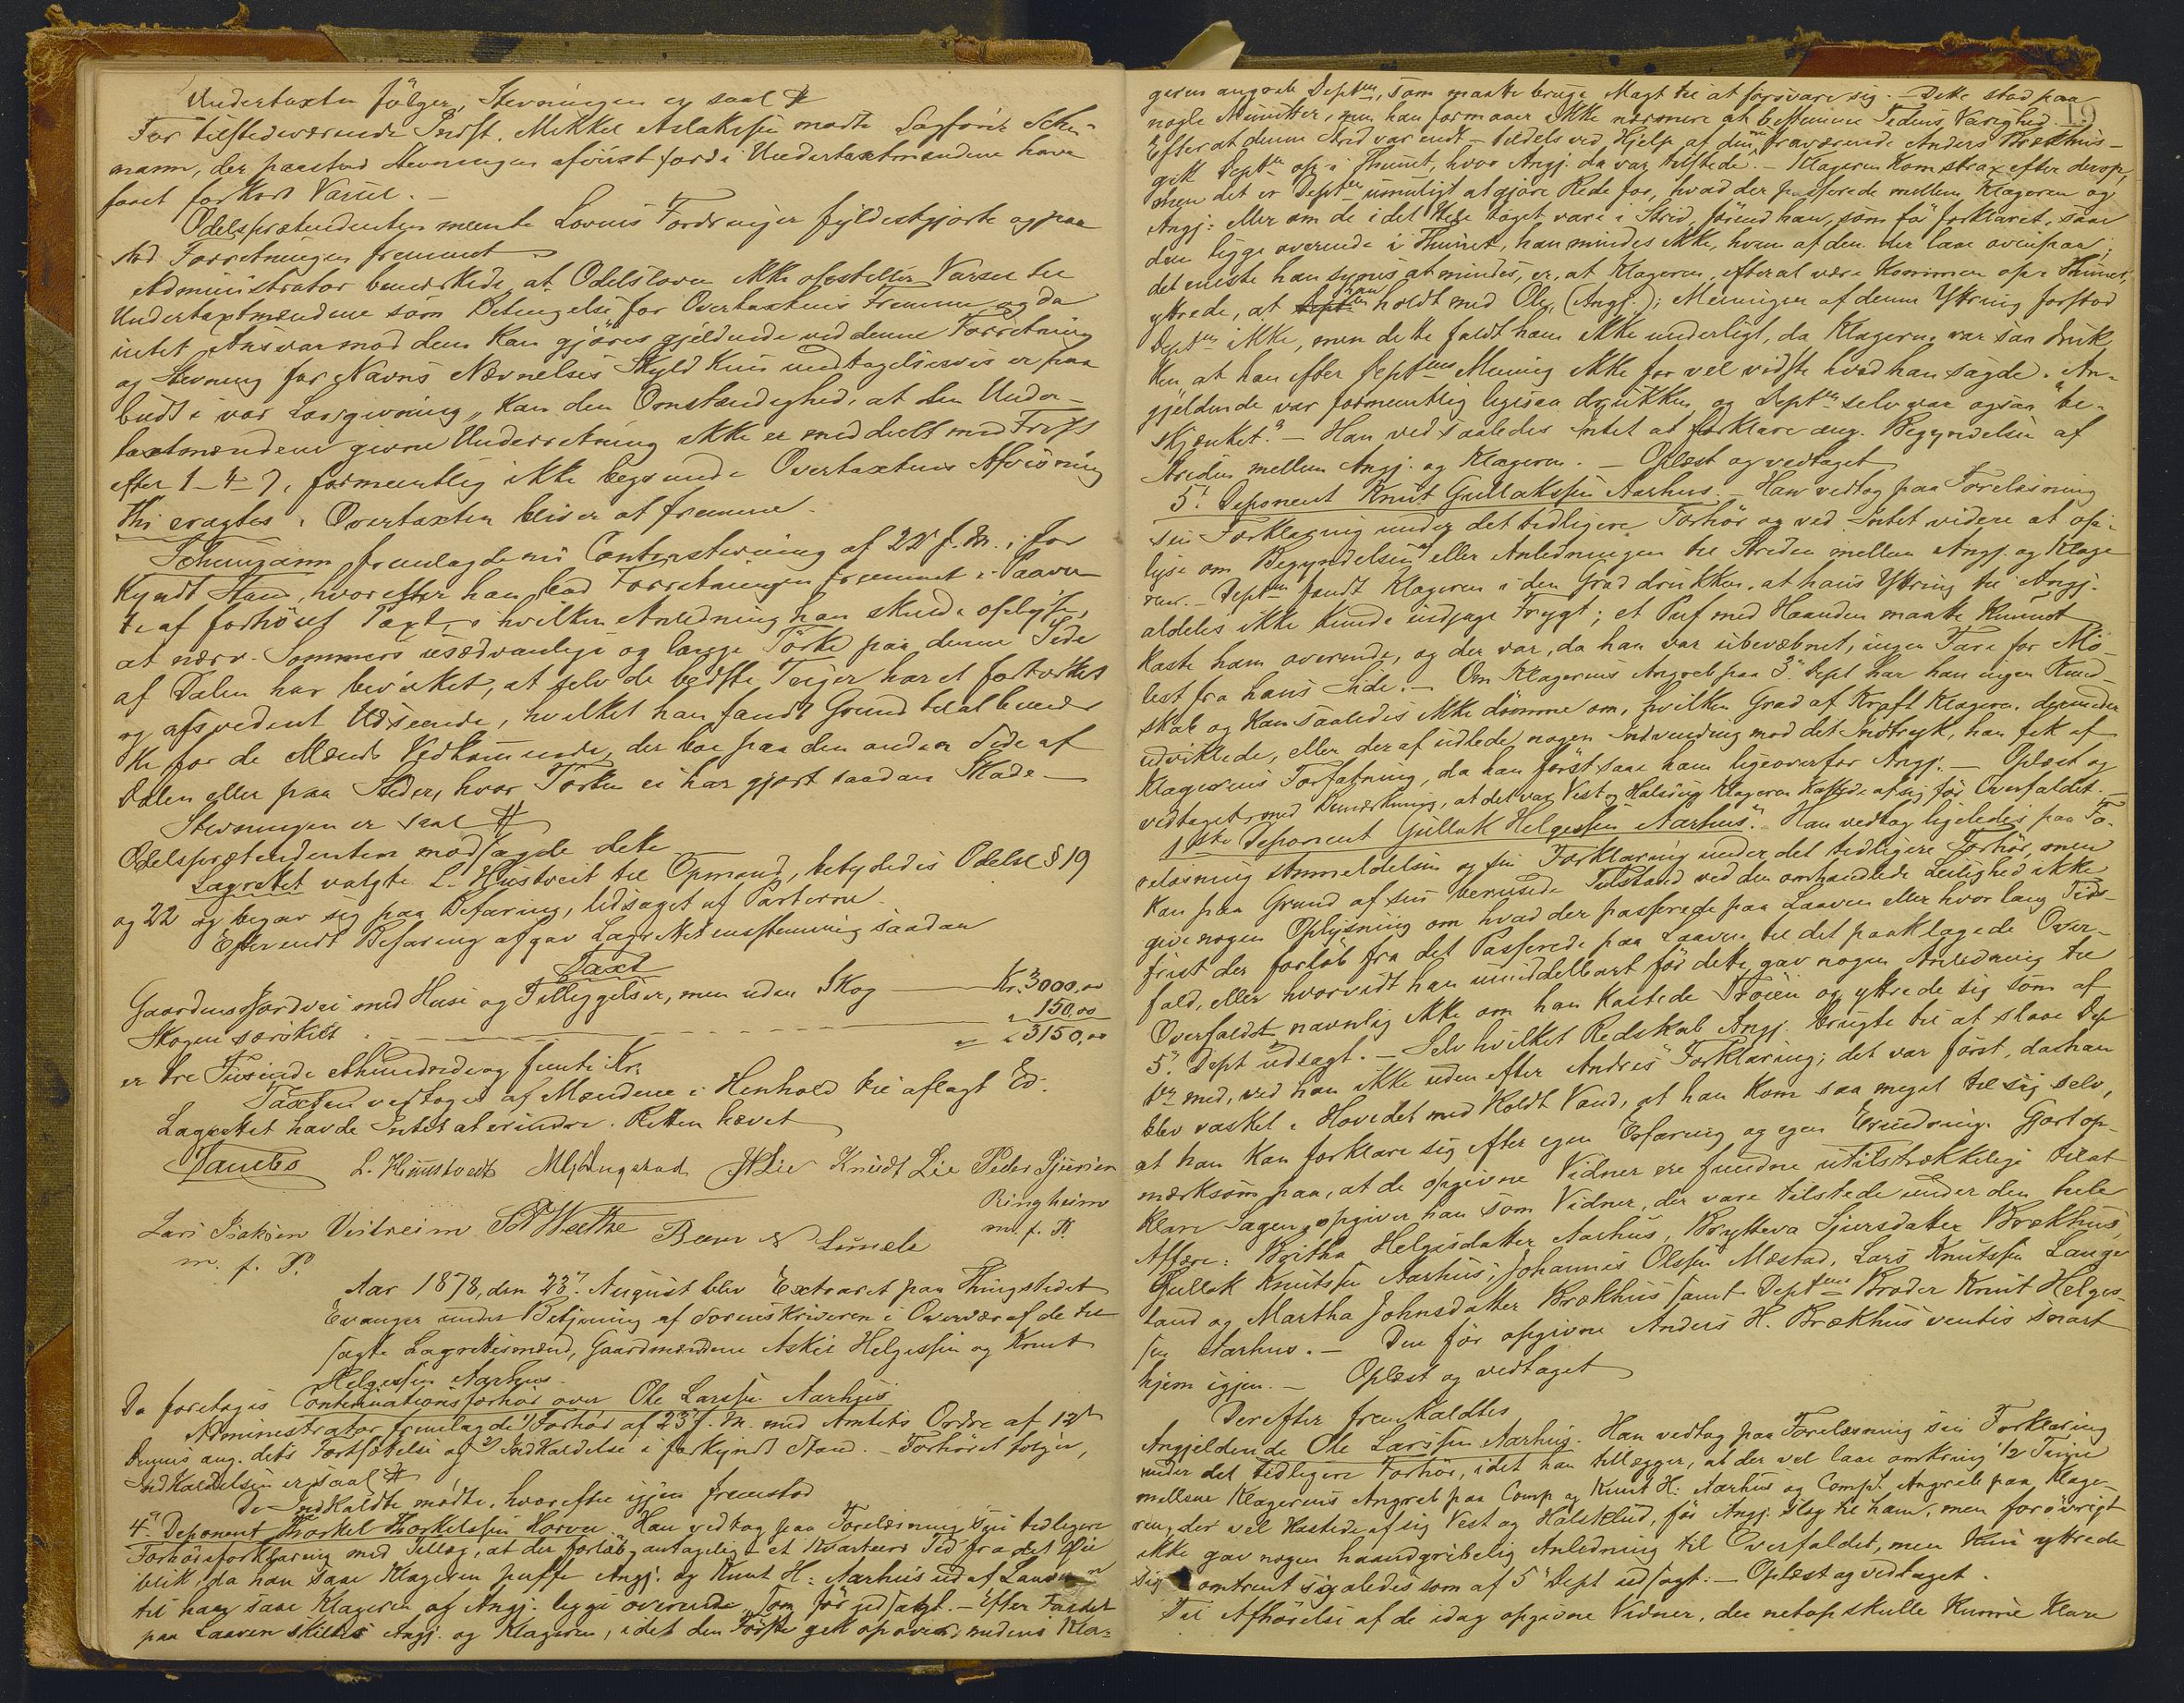 Undertaxten følger, Stevningen er saal #
For tilstedeværende Indst. Mikkel Aslaksen mødte Sagfører Schu-
mann, der paastod Stevningen afviist fordi Undertaxtmændene have
faaet for kort Varsel. -
Odelsprætendenten meente Lovens Fordringer fyldestgjorte og paa
stod Forretningen fremmet
Administrator bemærkede, at Odelsloven ikke opstiller Varsel til
Undertaxtmændene som Betingelse for Overtaxtens Fremme og da
intet Ansvar mod dem kan gjøres gjældende ved denne Forretning
og Stevning for Navns Nævnelses Skyld kun undtagelsesvis er paa
budt i vor Lovgivning, kan den Omstændighed, at den Under-
taxtmændene givne Underretning ikke er meddeelt med Frist
efter 1-4-7, formentlig ikke begrunde Overtaxtens Afvisning
Thi eragtes: Overtaxten bliver at fremme.
Schumann fremlagde nu Contrastevning af 22 f. M. i for
kyndt Stand, hvorefter han bad Forretningen fremmet i Paaven-
te af forhøiet Taxt, i hvilken Anledning han skulde oplyse,
at nærv. Sommers usædvanlige og lange Tørke paa denne Side
af Dalen har bevirket, at selv de bedste Teiger har et fortørket
og afsvedent Udseende, hvilket han fandt Grund til at bemær
ke for de Mænds Vedkommende, der bor paa den anden Side af
Dalen eller paa Steder, hvor Tørken ei har gjort saadan Skade -
Stevningen er saal #
Odelsprætendenten modsagde dette
Lagrettet valgte L. Hustveit til Opmand, betydedes Odelsl § 19
og 22 og begav sig paa Befaring, ledsaget af Parterne.
Efter endt Befaring afgav Lagrettet enstemmig saadan
Taxt
Gaardens Jordvei med Huse og Tilleggelser, men uden Skog - Kr. 3000,00
Skogen særskilt - " 150,00
" " 3150,00
er tre Tusinde ethundrede og femti Kr.
Taxten vedtoges af Mændene i Henhold til aflagt Ed.
Lagrettet havde Intet at erindre. Retten hævet
L. Hustvedt Knudt Lie Peder Sjursen
Ringheim
Lars Isaksen Vestreim
m. f. P.
m. f. P.
Aar 1878, den 23' August blev Extraret paa Thingstedet
Evanger under Betjening af Sorenskriveren i Overvær af de til
sagte Lagrettesmænd, Gaardmændene Askil Helgesen og Knut
Helgesen Aarhus.
Da foretages Continuationsforhør over Ole Larssen Aarhus
Administrator fremlagde 1) Forhør af 23' f. M. med Amtets Ordre af 12'
Dennes ang. dets Fortsættelse og 2) Indkaldelse i forkyndt Stand. - Forhøret følger,
Indkaldelsen er saal #
De Indkaldte mødte, hvorefter igjen fremstod
4' Deponent Thorkel Thorkelssen Horvei. Han vedtog paa Forelæsning sin tidligere
Forhørsforklaring med Tillæg, at der forløb antagelig et Kvarteers Tid fra det Øie
blik, da han saae Klageren puffe Angj. og Knut H: Aarhus ud af Laaven
til han saae Klageren og Angj. ligge overende, som før udsagt. - Efter Faldet
paa Laaven skiltes Angj. og Klageren, idet den Første gik op over, medens Kla-
geren angreb Deptn, som maatte bruge Magt til at forsvare sig. - Dette stod paa
nogle Minutter, men han formaaer ikke nærmere at bestemme Tidens Varighed.
Efter at denne Strid var endt - tildels ved Hjelp af den nu fraværende Anders Brækhus -
gik Deptn op i Thunet, hvor Angj. da var tilstede. - Klageren kom strax efter derop,
men det er Deptn umuligt at gjøre Rede for, hvad der passerede mellem Klageren og
Angj: eller om de i det Hele taget vare i Strid, førend han, som før forklaret, saae
dem ligge overende i Thunet, han mindes ikke, hvem af dem der laae ovenpaa;
det eneste han synes at mindes, er, at Klageren, efterat være kommen op i Thunet,
yttrede, at han holdt med Ole, (Angj.); Meningen af denne Yttring forstod
Deptn ikke, men dette faldt ham ikke underligt, da Klageren var saa druk
ken, at han efter Deptns Mening ikke for vel vidste hvad han sagde. An-
gjeldende var formentlig ligesaa drukken, og Deptn selv var ogsaa "be-
skjænket." - Han ved saaledes Intet at forklare ang. Begyndelsen af
Striden mellem Angj. og Klageren. - Oplæst og vedtaget
5' Deponent Knut Gullakssen Aarhus. - Han vedtog paa Forelæsning
sin Forklaring under det tidligere Forhør og ved Intet videre at op-
lyse om Begyndelsen eller Anledningen til Striden mellem Angj. og Klage
ren. - Deptn fandt Klageren i den Grad drukken, at hans Yttring til Angj.
aldeles ikke kunde indjage Frygt; et Puf med Haanden maatte kunnet
kaste ham overende, og der var, da han var ubevæbnet, ingen Fare for Mo-
lest fra hans Side. - Om Klagerens Angreb paa 3' Dept har han ingen Kund-
skab og kan saaledes ikke dømme om, hvilken Grad af Kraft Klageren derunder
udviklede, eller deraf udlede nogen Indvending mod det Indtryk, han fik af
Klagerens Forfatning, da han først saae ham ligeoverfor Angj. - Oplæst og
vedtaget, med Bemærkning, at det var Vest og Halstørk Klageren kastede af sig før Overfaldet. -
1ste Deponent Gullak Helgessen Aarhus. - Han vedtog ligeledes paa Fo-
relæsning Anmeldelsen og sin Forklaring under det tidligere Forhør, men
kan paa Grund af sin berusede Tilstand ved den omhandlede Leilighed ikke
give nogen Oplysning om hvad der passerede paa Laaven eller hvor lang Tids-
frist der forløb fra det Passerede paa Laaven til det paaklagede Over-
fald, eller hvorvidt han umiddelbart før dette gav nogen Anledning til
Overfaldet, navnlig ikke om han kastede Trøien og yttrede sig som af
5' Dept udsagt. - Selv hvilket Redskab Angj. brugte til at slaae Dep
tn med, ved han ikke uden efter Andres Forklaring; det var først, da han
blev vasket i Hovedet med koldt Vand, at han kom saa meget til sig selv,
at han kan forklare sig efter egen Erfaring og egen Erindring. Gjort op-
mærksom paa, at de opgivne Vidner ere fundne utilstrækkelige til at
klare Sagen, opgiver han som Vidner, der vare tilstede under den hele
Affære: Britha Helgesdatter Aarhus, Brytteva Sjursdatter Brækhus,
Gullak Knutssen Aarhus, Johannes Olssen Mæstad, Lars Knutssen Lange
land og Martha Johnsdatter Brækhus samt Deptns Broder Knut Helges-
sen Aarhus. - Den før opgivne Anders H. Brækhus ventes snart
hjem igjen. - Oplæst og vedtaget
Derefter fremkaldtes
Angjeldende Ole Larssen Aarhus. Han vedtog paa Forelæsning sin Forklaring
under det tidligere Forhør, idet han tillægger, at der vel laae omkring 1/2 Time
mellem Klagerens Angreb paa Comp og Knut H: Aarhus og Compt. Angreb paa Klage-
ren, der vel kastede af sig Vest og Halsklud, før Angj. slog til ham, men forøvrigt
ikke gav nogen haandgribelig Anledning til Overfaldet, men kun yttrede
sig omtrent saaledes som af 5' Dept udsagt. - Oplæst og vedtaget.
Til Afhørelse af de idag opgivne Vidner, der netop skulle kunne klare